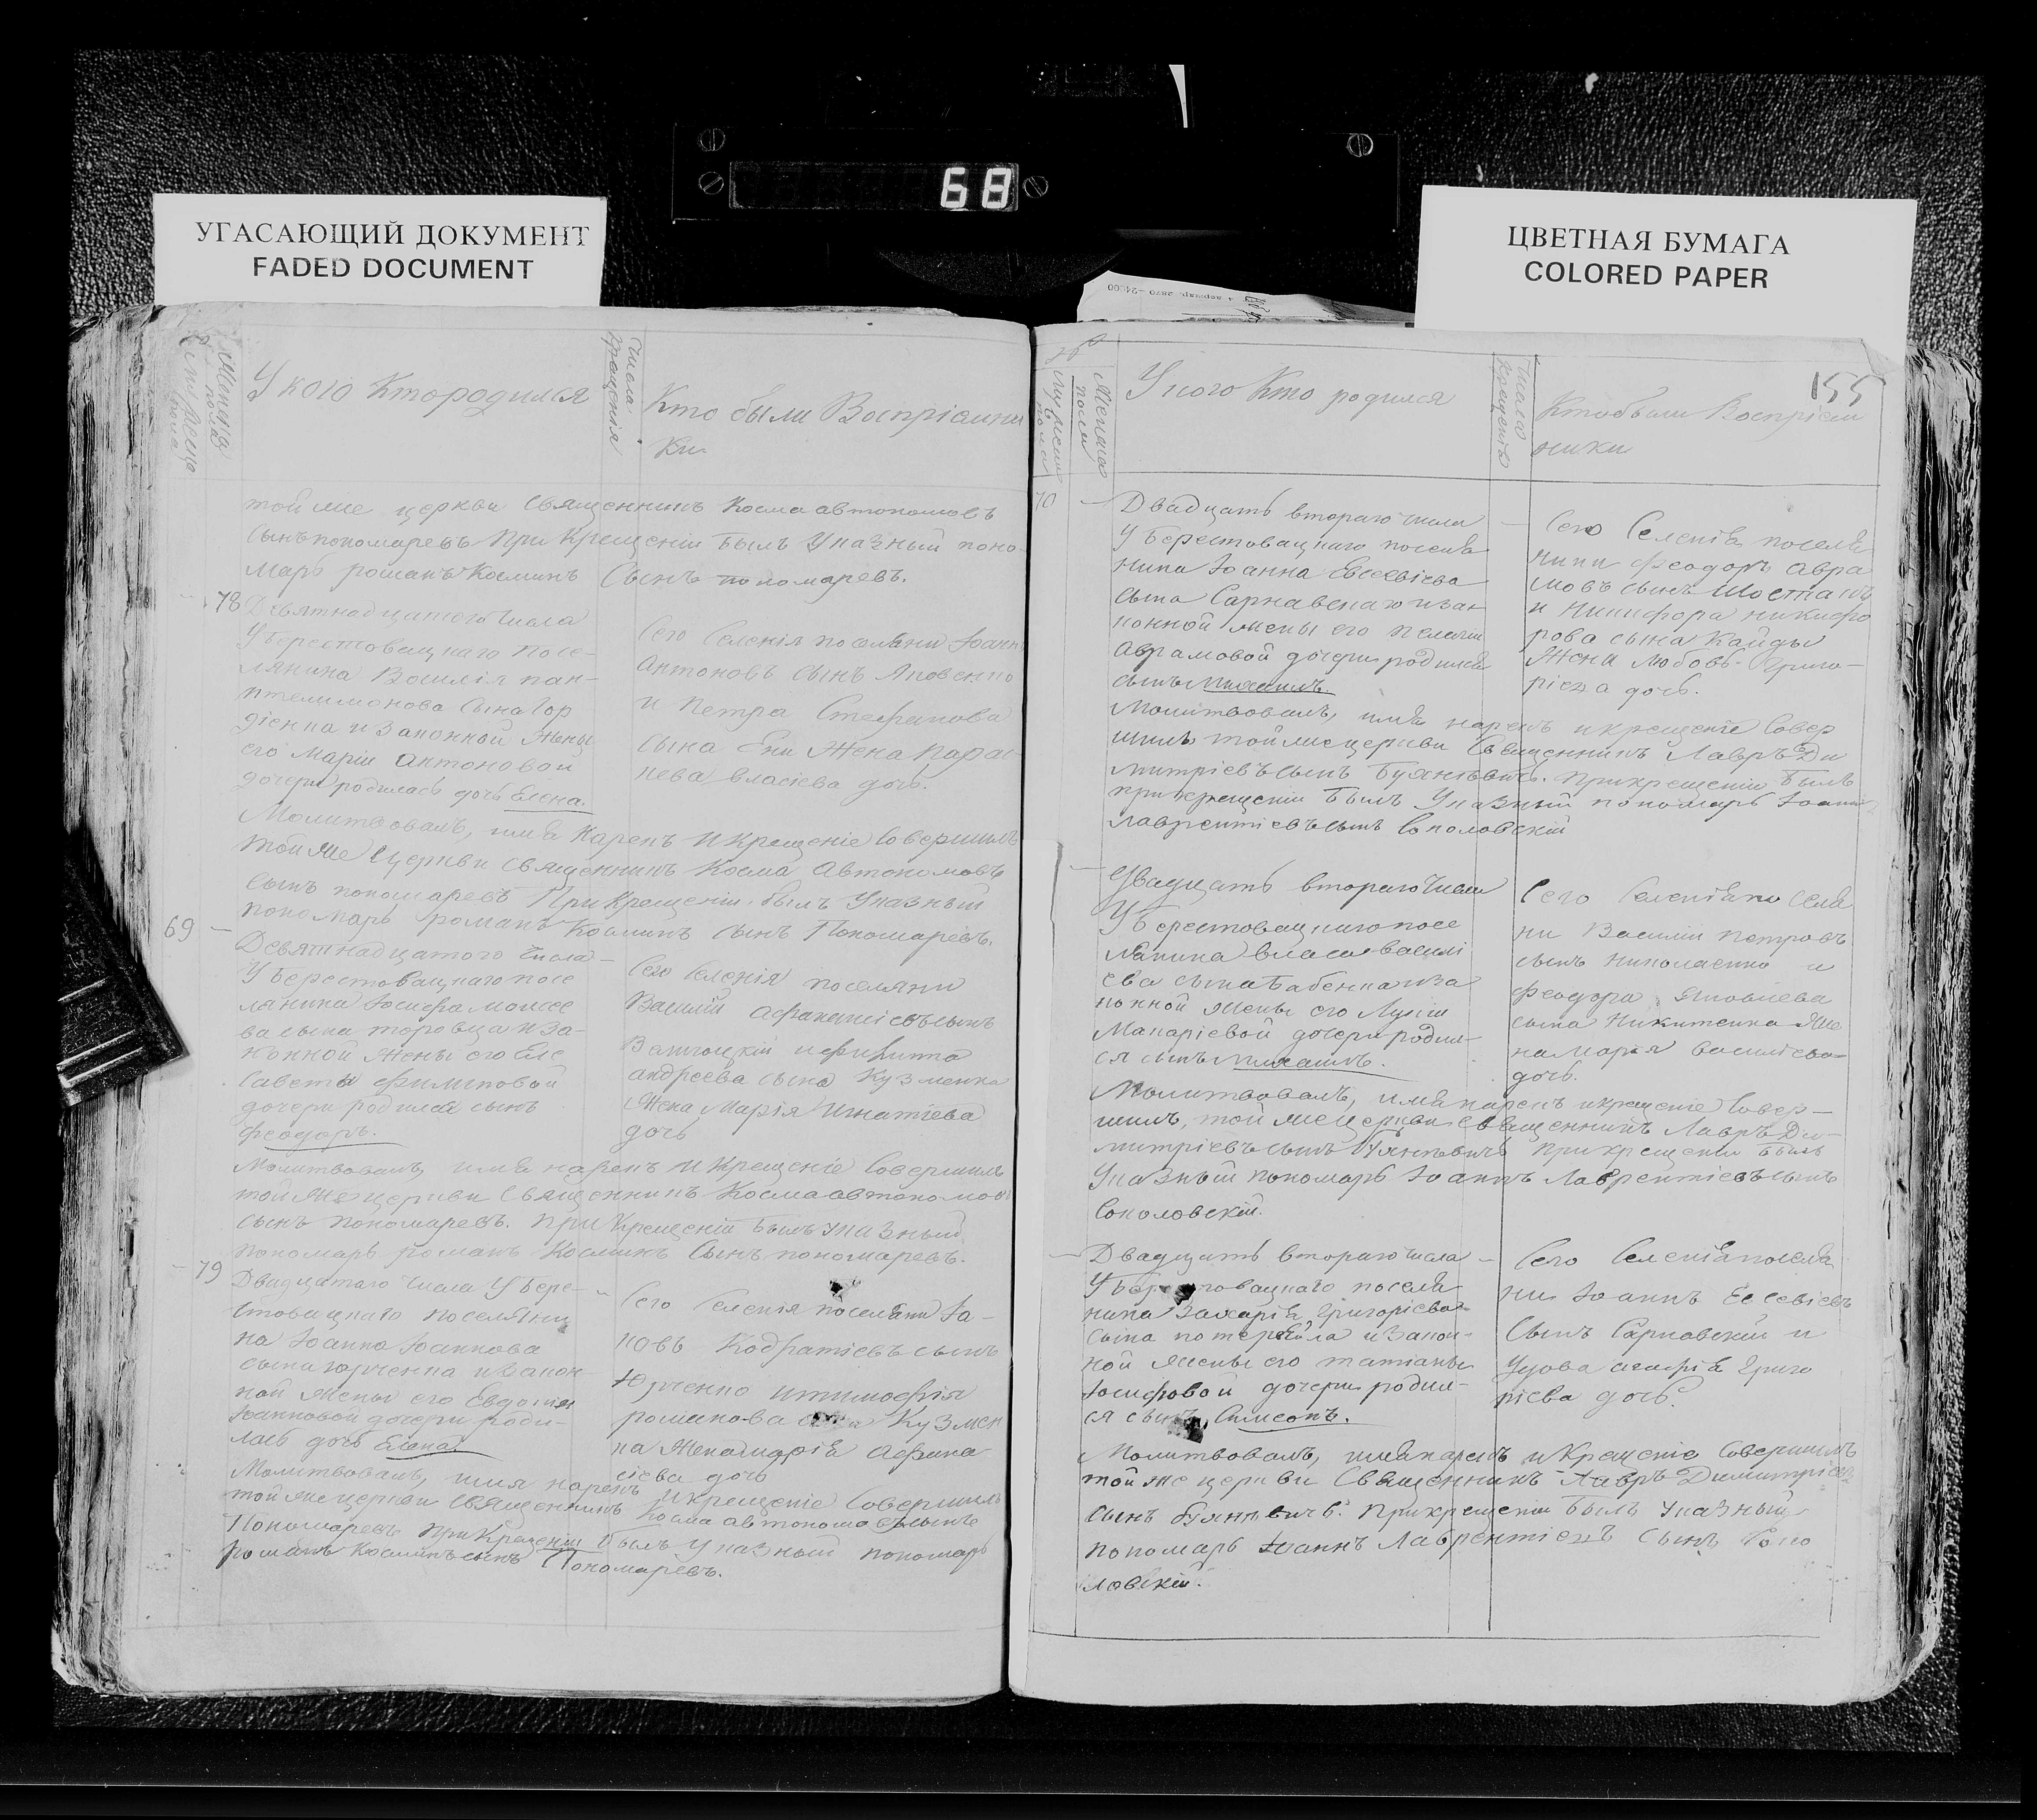 68
УГАСАЮЩИЙ ДОКУМЕНТ
FADED DOCUMENT
ЦВЕТНАЯ БУМАГА
COLORED PAPER
У кого Кто родился
Числа крещенія
Кто были Воспріемни
ки.
той же церкви священникъ Косма автономовъ
сынъ пономаревъ При Крещеніи былъ Указный поно
марь романъ Косминъ Сынъ пономаревъ.
78
Девятнадцатого Числа
У Берестовацкаго посе-
лянина Василія пан-
телимонова сына Гор
діенка и законной Жены
его Маріи антоновой
дочери родилась дочь Елена.
Сего Селенія поселяни Іоаннъ
Антоновъ сынъ Яковенко
и Петра Стефанова
сына Жена Парас
кева власіева дочь.
Молитвовалъ, имя нарекъ и крещеніе Совершилъ
той же Церкви священникъ Косма Автономовъ
сынъ пономаревъ При Крещеніи былъ Указный
пономарь романъ Косминъ сынъ Пономаревъ.
69
Девятнадцатого числа
У Берестовацкаго посе
лянина Іосифа Моисее
ва сына и за-
конной Жены его Еле
саветы Филиповой
дочери родился сынъ
Феодоръ.
Сего Селенія поселяни
Василій Афанасіевъ сынъ
андреева сына Кузменка
Жена Марія Игнатіева
дочь
Молитвовалъ, имя нарекъ и Крещеніе Совершилъ
той же церкви священникъ Косма автономовъ
сынъ пономаревъ. При Крещеніи былъ указный
пономарь романъ Косминъ Сынъ пономаревъ.
79
Двадцатаго числа У Бере-
стовацкаго поселяни
на Іоанна Іоаннова
сына юрченка и закон-
ной Жены его Евдокіи
Іоанновой дочери роди-
лась дочь Елена.
Сего Селенія поселяни Іа-
ковъ Кодратіевъ сынъ
Юрченко и тимофія
романова сына Кузмен
ка Жена марія Афана
сіева дочь
Молитвовалъ, имя нарекъ и крещеніе Совершилъ
той же церкви священникъ Косма автономовъ сынъ
Пономаревъ При Крещеніи былъ Указный пономарь
романъ Косминъ сынъ Пономаревъ.
155
У кого Кто родился
Кто были Воспріем
ники
70
Двадцать втораго числа
У Берестовацкаго поселя
нина Іоанна Евсевіева
сына Сарнавскаго и зак
конной жены его Пелагіи
Аврамовой дочери родился
сынъ Михаилъ.
Сего Селенія поселя
нини Феодоръ Авра
мовъ сынъ Шостакъ
и Никифора никифо
рова сына Кайды
Жена Любовь Григо-
ріева дочь.
Молитвовалъ, имя нарекъ и крещеніе Совер
шилъ той же церкви Священникъ Лавръ Ди
митріевъ сынъ При крещеніи былъ
при крещеніи былъ Указный пономарь Іоаннъ
Лаврентіевъ сынъ Соколовскій
Двадцать втораго Числа
У Берестовацкаго посе
лянина власа василі
ева сына Бабенка и за
конной жены его Лукіи
Макаріевой дочери родил-
ся сынъ Михаилъ.
Сего Селенія посел
ни Василій Петровъ
сынъ Николаенко и
Феодора Яковлева
сына Никитенка Же
на Марія василіева
дочь.
Молитвовалъ, имя нарекъ и крещеніе Совер-
шилъ, той же Церкви священникъ Лавръ Ди-
митріевъ сынъ При крещеніи былъ
Указный пономарь Іоаннъ Лаврентіевъ сынъ
Соколовскій.
Двадцать втораго числа
У Берестовацкаго поселя
нина Захарія Григоріева
сына и закон-
ной жены его татіаны
Іосифовой дочери родил-
ся сынъ Симеонъ.
Сего Селенія поселя
ни Іоаннъ Евсевіевъ
Сынъ Сарнавскій и
агафія Григо
ріева дочь.
Молитвовалъ, имя нарекъ и Крещеніе Совершилъ
той же церкви Священникъ Лавръ Димитріевъ
Сынъ При крещеніи былъ Указный
пономарь Іоаннъ Лаврентіевъ Сынъ Соко
ловскій.